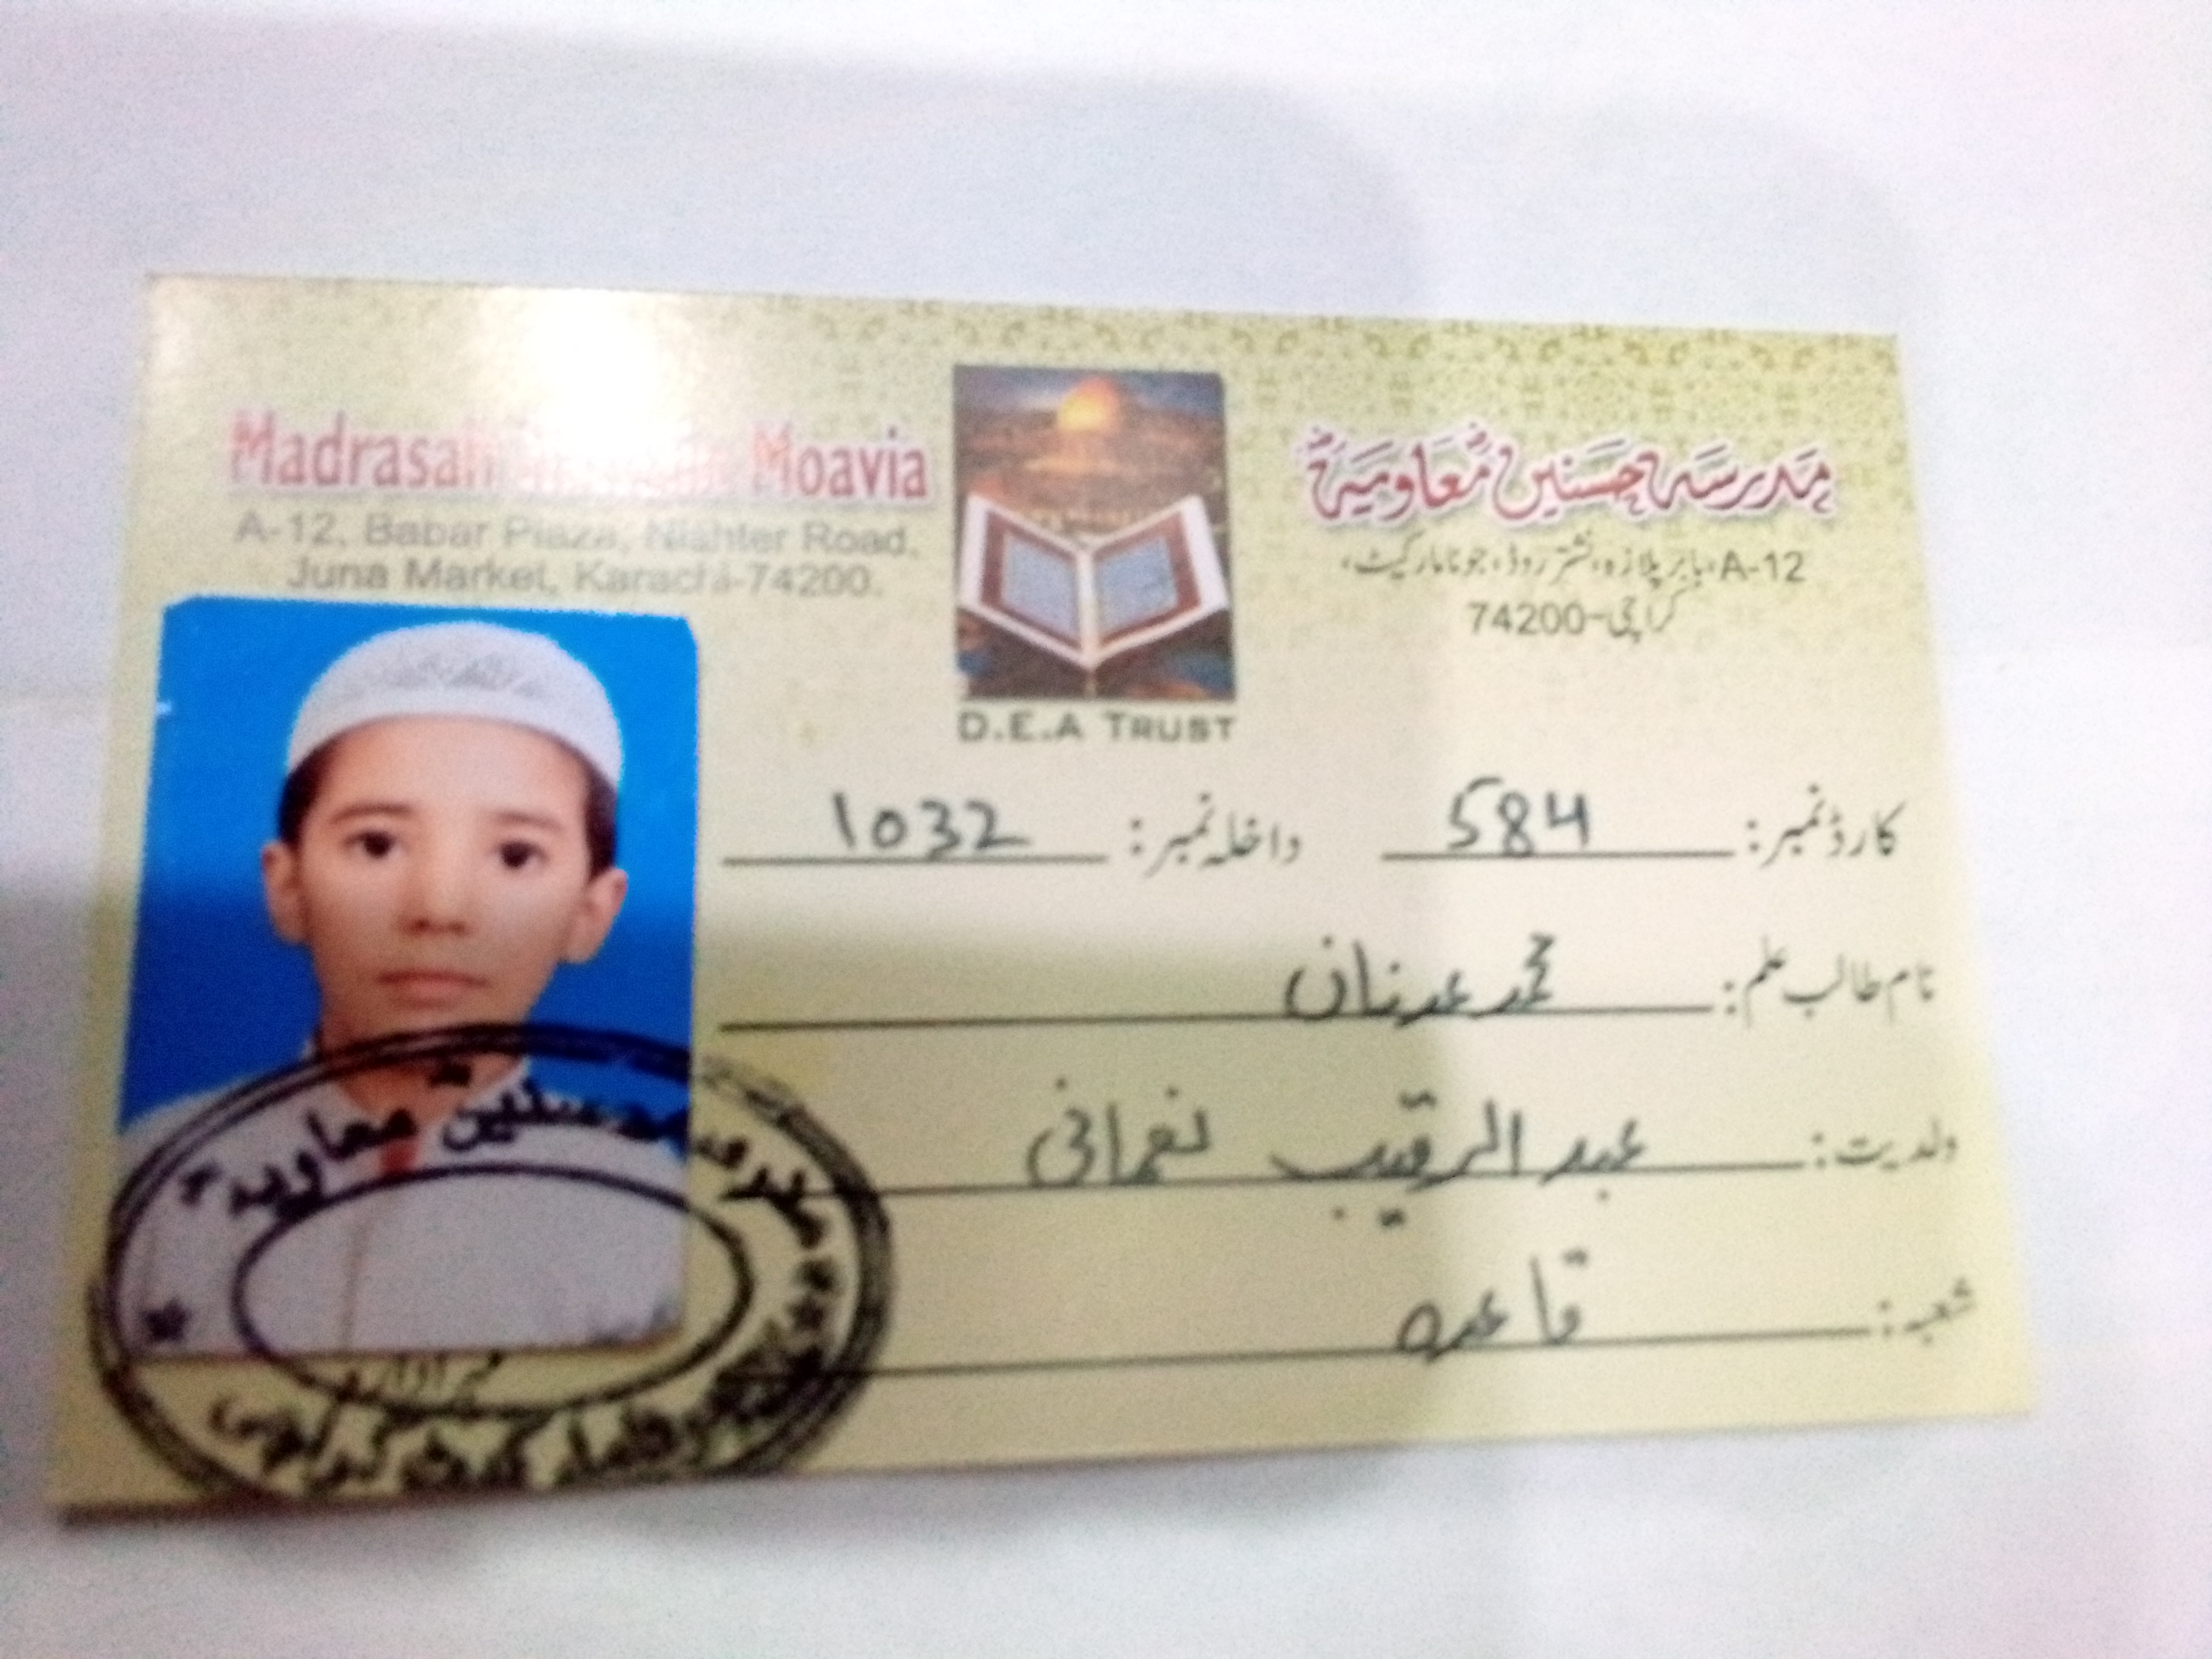 Madrasah Moavia
A-12, Babar Plaza, Nishter Road,
Juna Market, Karachi-74200.
D.E.A TRUST
مدرسہ حسنین معاویہؓ
A-12، بابر پلازہ، نشتر روڈ، جونا مارکیٹ،
کراچی-74200
کارڈ نمبر: 584 داخلہ نمبر: 1032
نام طالب علم: محمد عدنان
ولدیت: عبد الرقیب نعمانی
شعبہ: قاعدہ
مدرسہ حسنین معاویہ
مارکیٹ کراچی